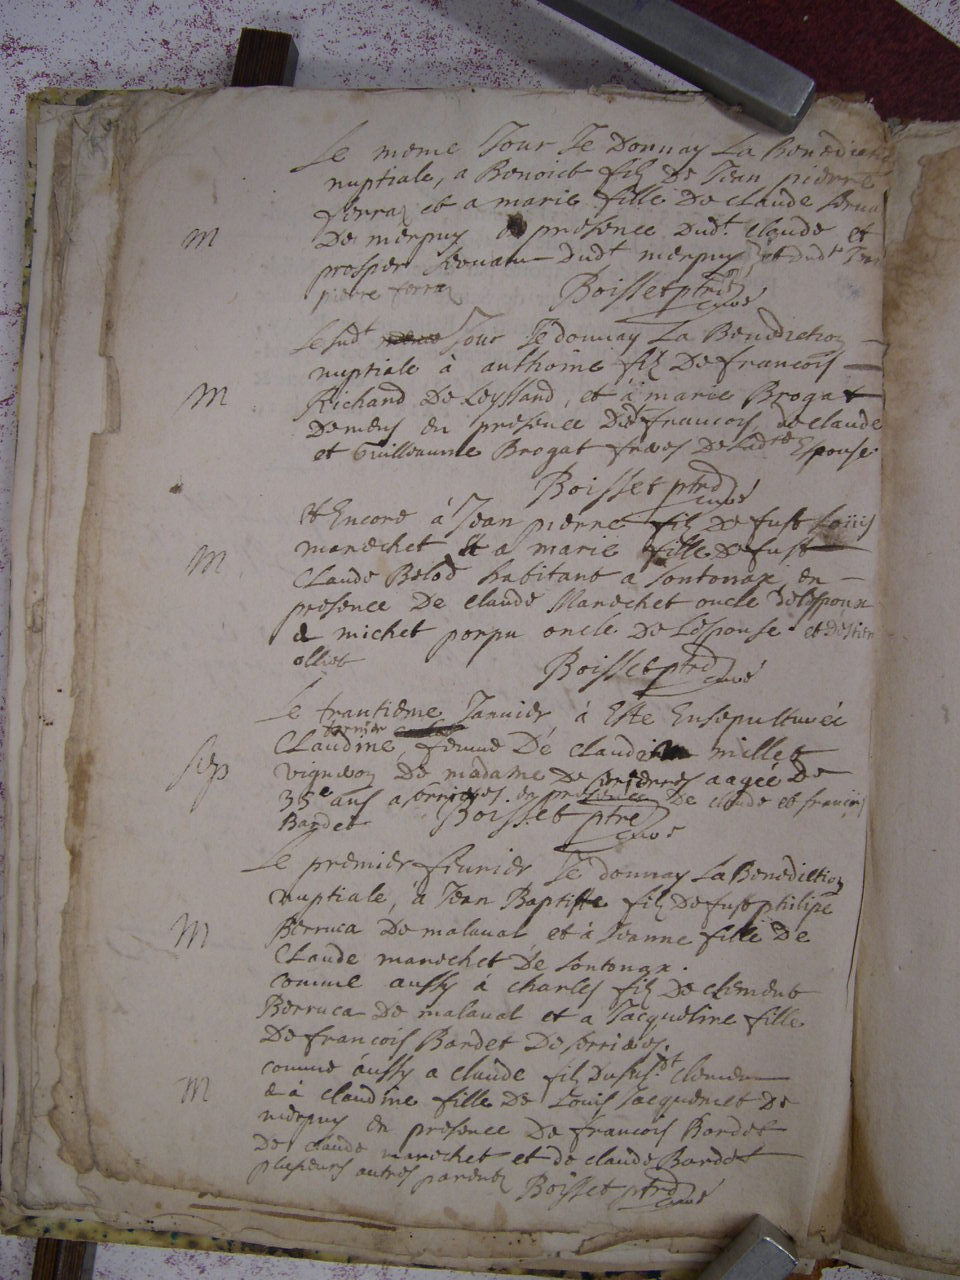 Le meme Jour Je Donnay La Benediction
nuptiale, a Benoict filz De Jean pierre
ferraz et a marie fille De Claude
M De merpuy presence Dudt. Claude et
prosper Dudt merpuy, et dudt Jean
pierre ferraz Boisset ptre curé
Le sudt Jour Je donnay La Benediction
nuptiale à anthoine filz De francois
M Richard De Leyssard, et à marie Brogat
De mens en presence Dudt francois, de claude
et Guilleaume Brogat freres De Ladte Espouse
Boisset ptre curé
Et Encore à Jean pierre filz De fust Loüis
M marechet Et a marie fille De fust
Claude Belod habitant a Sontonax, en
presence De Claude Marechet oncle de lespoux
& michet porpu oncle De Lespouse et
olliet Boisset ptre curé
Le trantieme Janvier à Este Ensepulturéé
dernier
Claudine, femme Dé claude millet
sep vigneron De madame De serrieres aagéé De
35e ans a serrieres. en presence De claude et francois
Bardet Boisset ptre curé
Le premier feurier Je donnay La Benediction
nuptiale, à Jean Baptiste filz De fust philipe
M Berruca De malaval et à Jeanne fille De
Claude marechet Dé Sontonax.
comme aussy à charles filz De clement
Berruca De malaval et a Jacqueline fille
De francois Bardet De serrieres.
comme áussy a claude filz Dusudt Clement
M & à claudine fille De Louis Jacquemet De
merpuy en presence De francois Bardet
De claude marechet et de claude Bardet
plusieurs autres parentz Boisset ptre curé